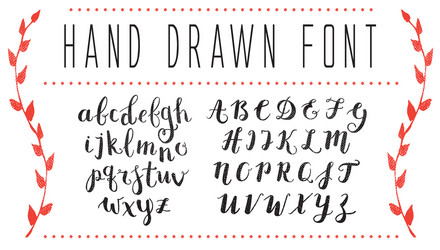 HAND DRAWN FONT
abcdefgh
ijklmno
pqrstuv
wxyz
ABCDEFG
HIJKLM
NOPQRST
UVWXYZ